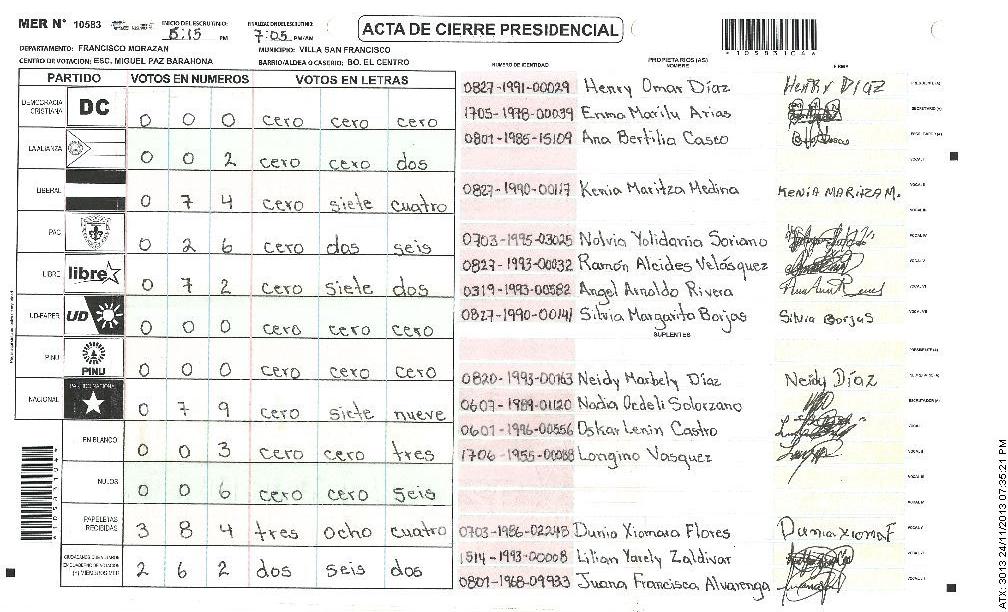 MER N° 10583
INICIO DEL ESCRUTINIO: 5:15 PM
FINALIZACION DEL ESCRUTINIO: 7:05 PM/AM
ACTA DE CIERRE PRESIDENCIAL
DEPARTAMENTO: FRANCISCO MORAZAN
MUNICIPIO: VILLA SAN FRANCISCO
CENTRO DE VOTACION: ESC. MIGUEL PAZ BARAHONA
BARRIO/ALDEA O CASERIO: BO. EL CENTRO
PARTIDO VOTOS EN NUMEROS VOTOS EN LETRAS
DEMOCRACIA CRISTIANA DC 0 0 0 cero cero cero
LA ALIANZA 0 0 2 cero cero dos
LIBERAL 0 7 4 cero siete cuatro
PAC 0 2 6 cero dos seis
LIBRE libre 0 7 2 cero siete dos
UD-FAPER UD 0 0 0 cero cero cero
PINU PINU 0 0 0 cero cero cero
NACIONAL 0 7 9 cero siete nueve
EN BLANCO 0 0 3 cero cero tres
NULOS 0 0 6 cero cero seis
PAPELETAS RECIBIDAS 3 8 4 tres ocho cuatro
2 6 2 dos seis dos
NUMERO DE IDENTIDAD PROPIETARIOS (AS) NOMBRE FIRMA
0827-1991-00029 Henry Omar Díaz Henry Díaz
1705-1978-00039 Enma Marilu Arias
0801-1985-15109 Ana Bertilia Casco
0827-1990-00117 Kenia Maritza Medina Kenia Maritza M.
0703-1995-03025 Nolvia Yolidania Soriano
0827-1993-00032 Ramón Alcides Velásquez
0319-1993-00582 Angel Arnoldo Rivera
0827-1990-00141 Silvia Margarita Borjas Silvia Borjas
SUPLENTES
0820-1993-00163 Neidy Marbely Díaz Neidy Díaz
0607-1989-01120 Nadia Dedeli Solorzano
0601-1996-00556 Oskar Lenin Castro
1706-1955-00088 Longino Vasquez
0703-1986-02248 Dunia Xiomara Flores Dunia Xioma F
1514-1993-00008 Lilian Yarely Zaldivar
0801-1968-09933 Juana Francisca Alvarenga
ATX-3013 24/11/2013 07:35:21 PM